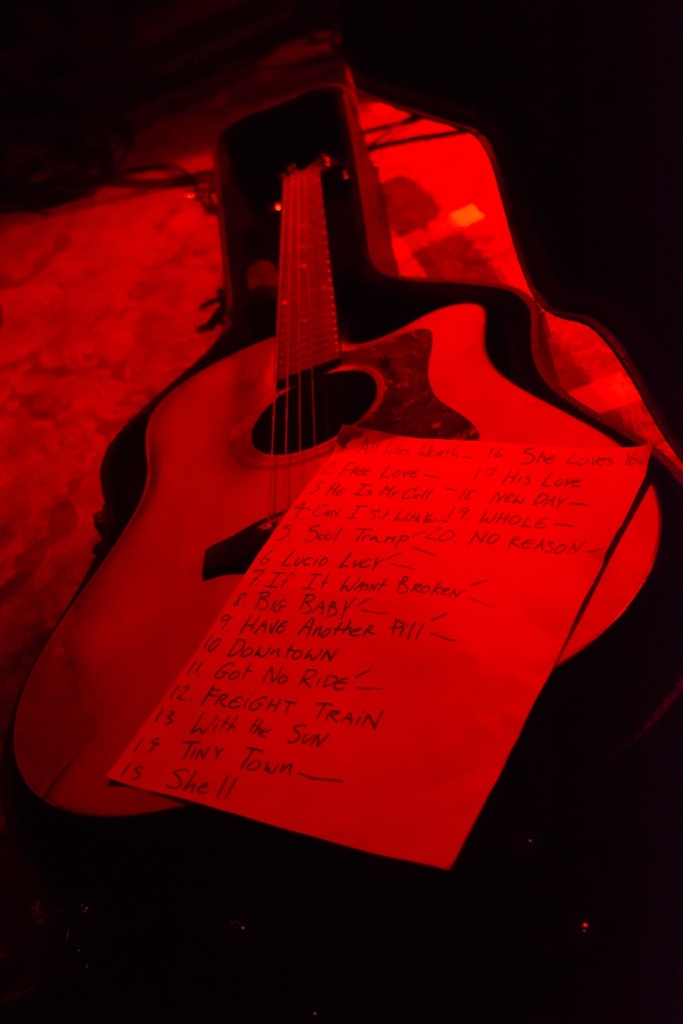 All Tims Worth 16 She Loves You
2 Free Love 17 His Love
3 He Is My Call 18 NEW DAY
4 Can I Sit With 19. WHOLE
5. Soul Tramp 20. NO REASON
6. Lucid Lucy
7. If It Wasnt Broken
8. Big Baby
9. HAVE Another Pill
10 Downtown
11. Got No Ride
12. FREIGHT TRAIN
13 With the Sun
14 Tiny Town
15 Shell